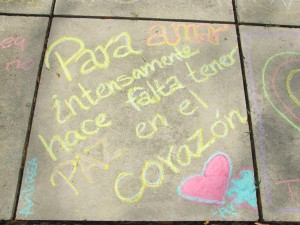 Para amar
intensamente
hace falta tener
Paz en el
corazón
ANDREA